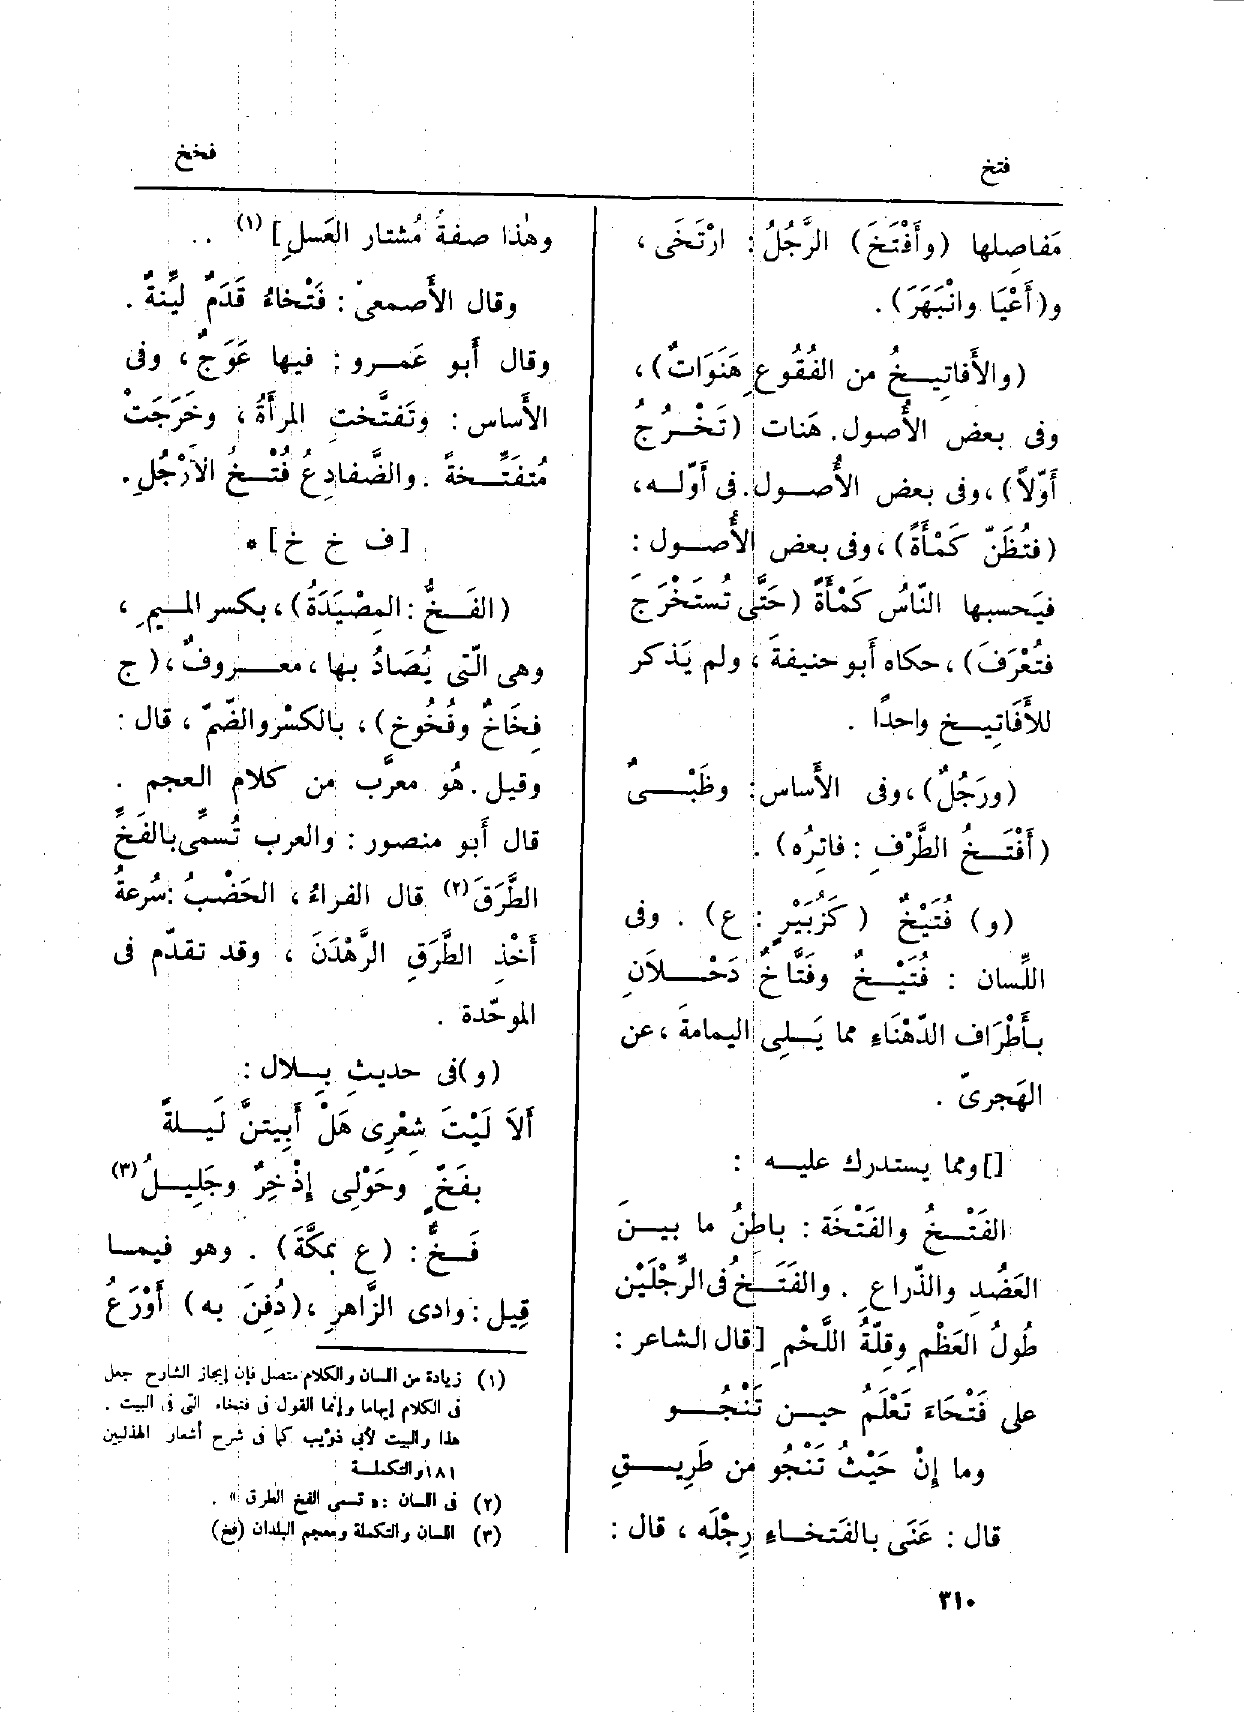 فتخ
فخخ
مَفاصِلها (وأَفْتَخَ) الرَّجُلُ: ارْتَخَى،
و(أَعْيَا وانْبَهَرَ).
(والأَفاتِيـخُ من الفُقُوعِ هَنَوَاتٌ)،
وفى بعض الأُصول. هَنات (تَخْـرُجُ
أَوّلاً)، وفى بعض الأُصـول. فى أَوّلـه،
(فتُظَنّ كَمْأَةً)، وفى بعض الأُصـول:
فيَحسبها النّاسُ كَمْأَةً (حَتَّى تُستَخْرَجَ
فتُعْرَفَ)، حكاه أَبو حنيفةَ، ولم يَذكر
للأَفَاتِيـخ واحدًا.
(ورَجُلٌ)، وفى الأَساس: وظَبْـىٌ
(أَفْتَـخُ الطَّرْفِ: فاتِرُه).
(و) فُتَيْخٌ (كَزُبَيْرٍ: ع). وفى
اللِّسان: فُتَيْـخٌ وفَتَّاخٌ دَحْـلاَنِ
بأَطْرَاف الدّهْنَاءِ مما يَـلِى اليمامةَ، عن
الهَجرىّ.
[]ومما يستدرك عليـه:
الفَتْـخُ والفَتْخَة: باطِنُ ما بيـن
العَضُدِ والذّراعِ. والفَتَـخُ فى الرِّجْلَيْن
طُولُ العَظْمِ وقِلّةُ اللَّحْمِ [قال الشاعر:
على فَتْحَاءَ تَعْلَمُ حيـن تَنْجُـو
وما إِنْ حَيْثُ تَنْجُو مِن طَرِيـقِ
قال: عَنَى بالفَتخـاءِ رِجْلَه، قال:
وهٰذا صفةُ مُشتار العَسلِ](١)..
وقال الأَصمعىّ: فَتْخاءُ قَدَمٌ ليِّنةٌ.
وقال أَبو عَمـرو: فيها عَوَجٌ، وفى
الأَساس: وتَفتَّخت المرأَةُ، وخَرَجَتْ
مُتفَتِّـخةً. والضَّفادِعُ فُتْـخُ الأَرْجُلِ.
[ف خ خ]*
(الفَـخُّ: المِصْيَدَةُ)، بكسر الميـمِ،
وهى الّتى يُصَادُ بها، معـروفٌ، (ج
فِخَاخٌ وفُخُوخ)، بالكسْر والضّمّ، قال:
وقيل. هُو معرَّب من كلام العجم.
قال أَبو منصور: والعرب تُسمِّى بالفَخِّ
الطَّرَقَ(٢) قال الفراءُ، الحَضْبُ: سُرعةُ
أَخْذِ الطَّرَقِ الرَّهْدَنَ، وقد تقدّم فى
الموحّدة.
(و) فى حديثِ بِـلال:
أَلاَ لَيْتَ شِعْرِى هَلْ أَبِيتنَّ لَيـلةً
بفَخٍّ وحَوْلِى إِذْخِرٌ وجَلِيـلُ(٣)
فَـخٌّ: (ع بمكَّةَ). وهو فيمـا
قِيل: وادى الزّاهرِ، (دُفِنَ به) أَوْرَعُ
(١) زيادة من اللسان والكلام متصل فإن إيجاز الشارح جعل
فى الكلام إيهاما وإنما القول فى فتخاء التى فى البيت.
هذا والبيت لأبى ذؤيب كما فى شرح أشعار الهذليين
١٨١ والتكملـة
(٢) فى اللسان: «تسمى الفخ الطرق».
(٣) اللسان والتكملة ومعجم البلدان (فخ)
٣١٠